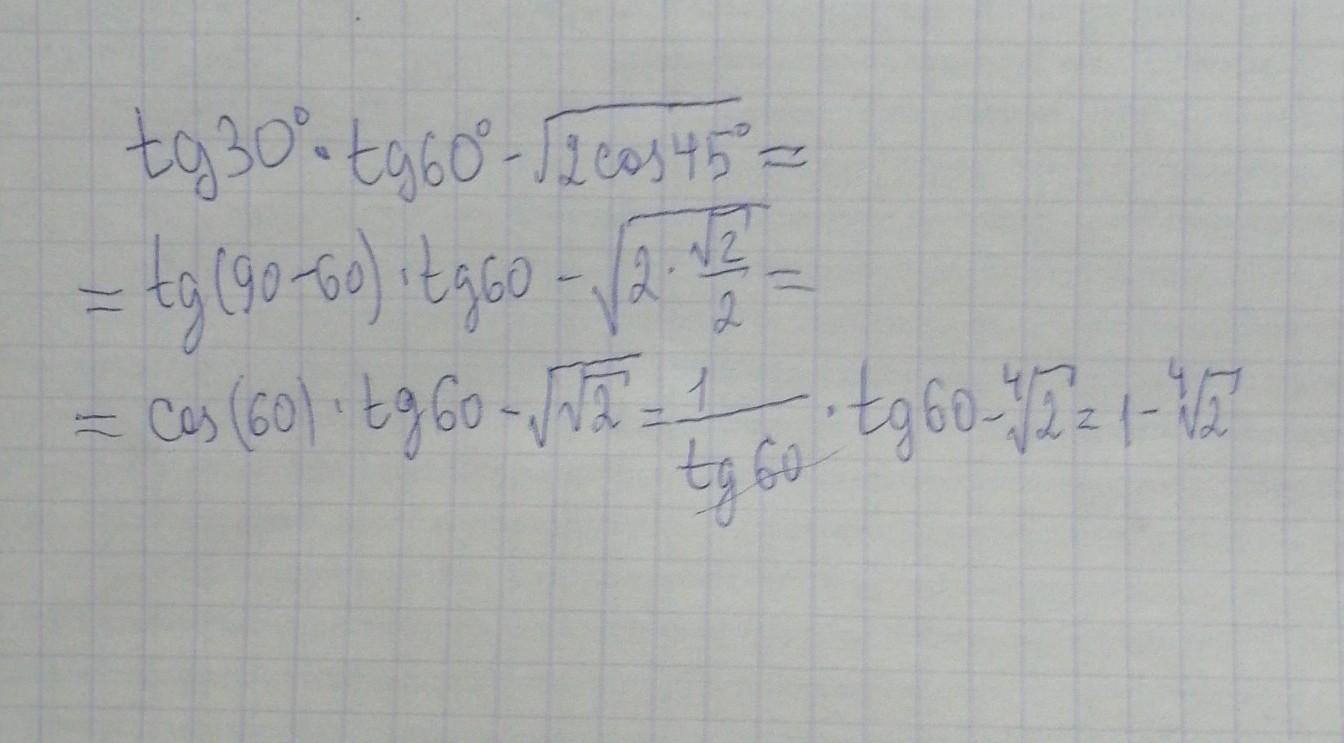 tg30°·tg60°-√(2cos45°)=
=tg(90-60)·tg60-√(2·√2/2)=
=cos(60)·tg60-√√2=1/tg60·tg60-⁴√2=1-⁴√2